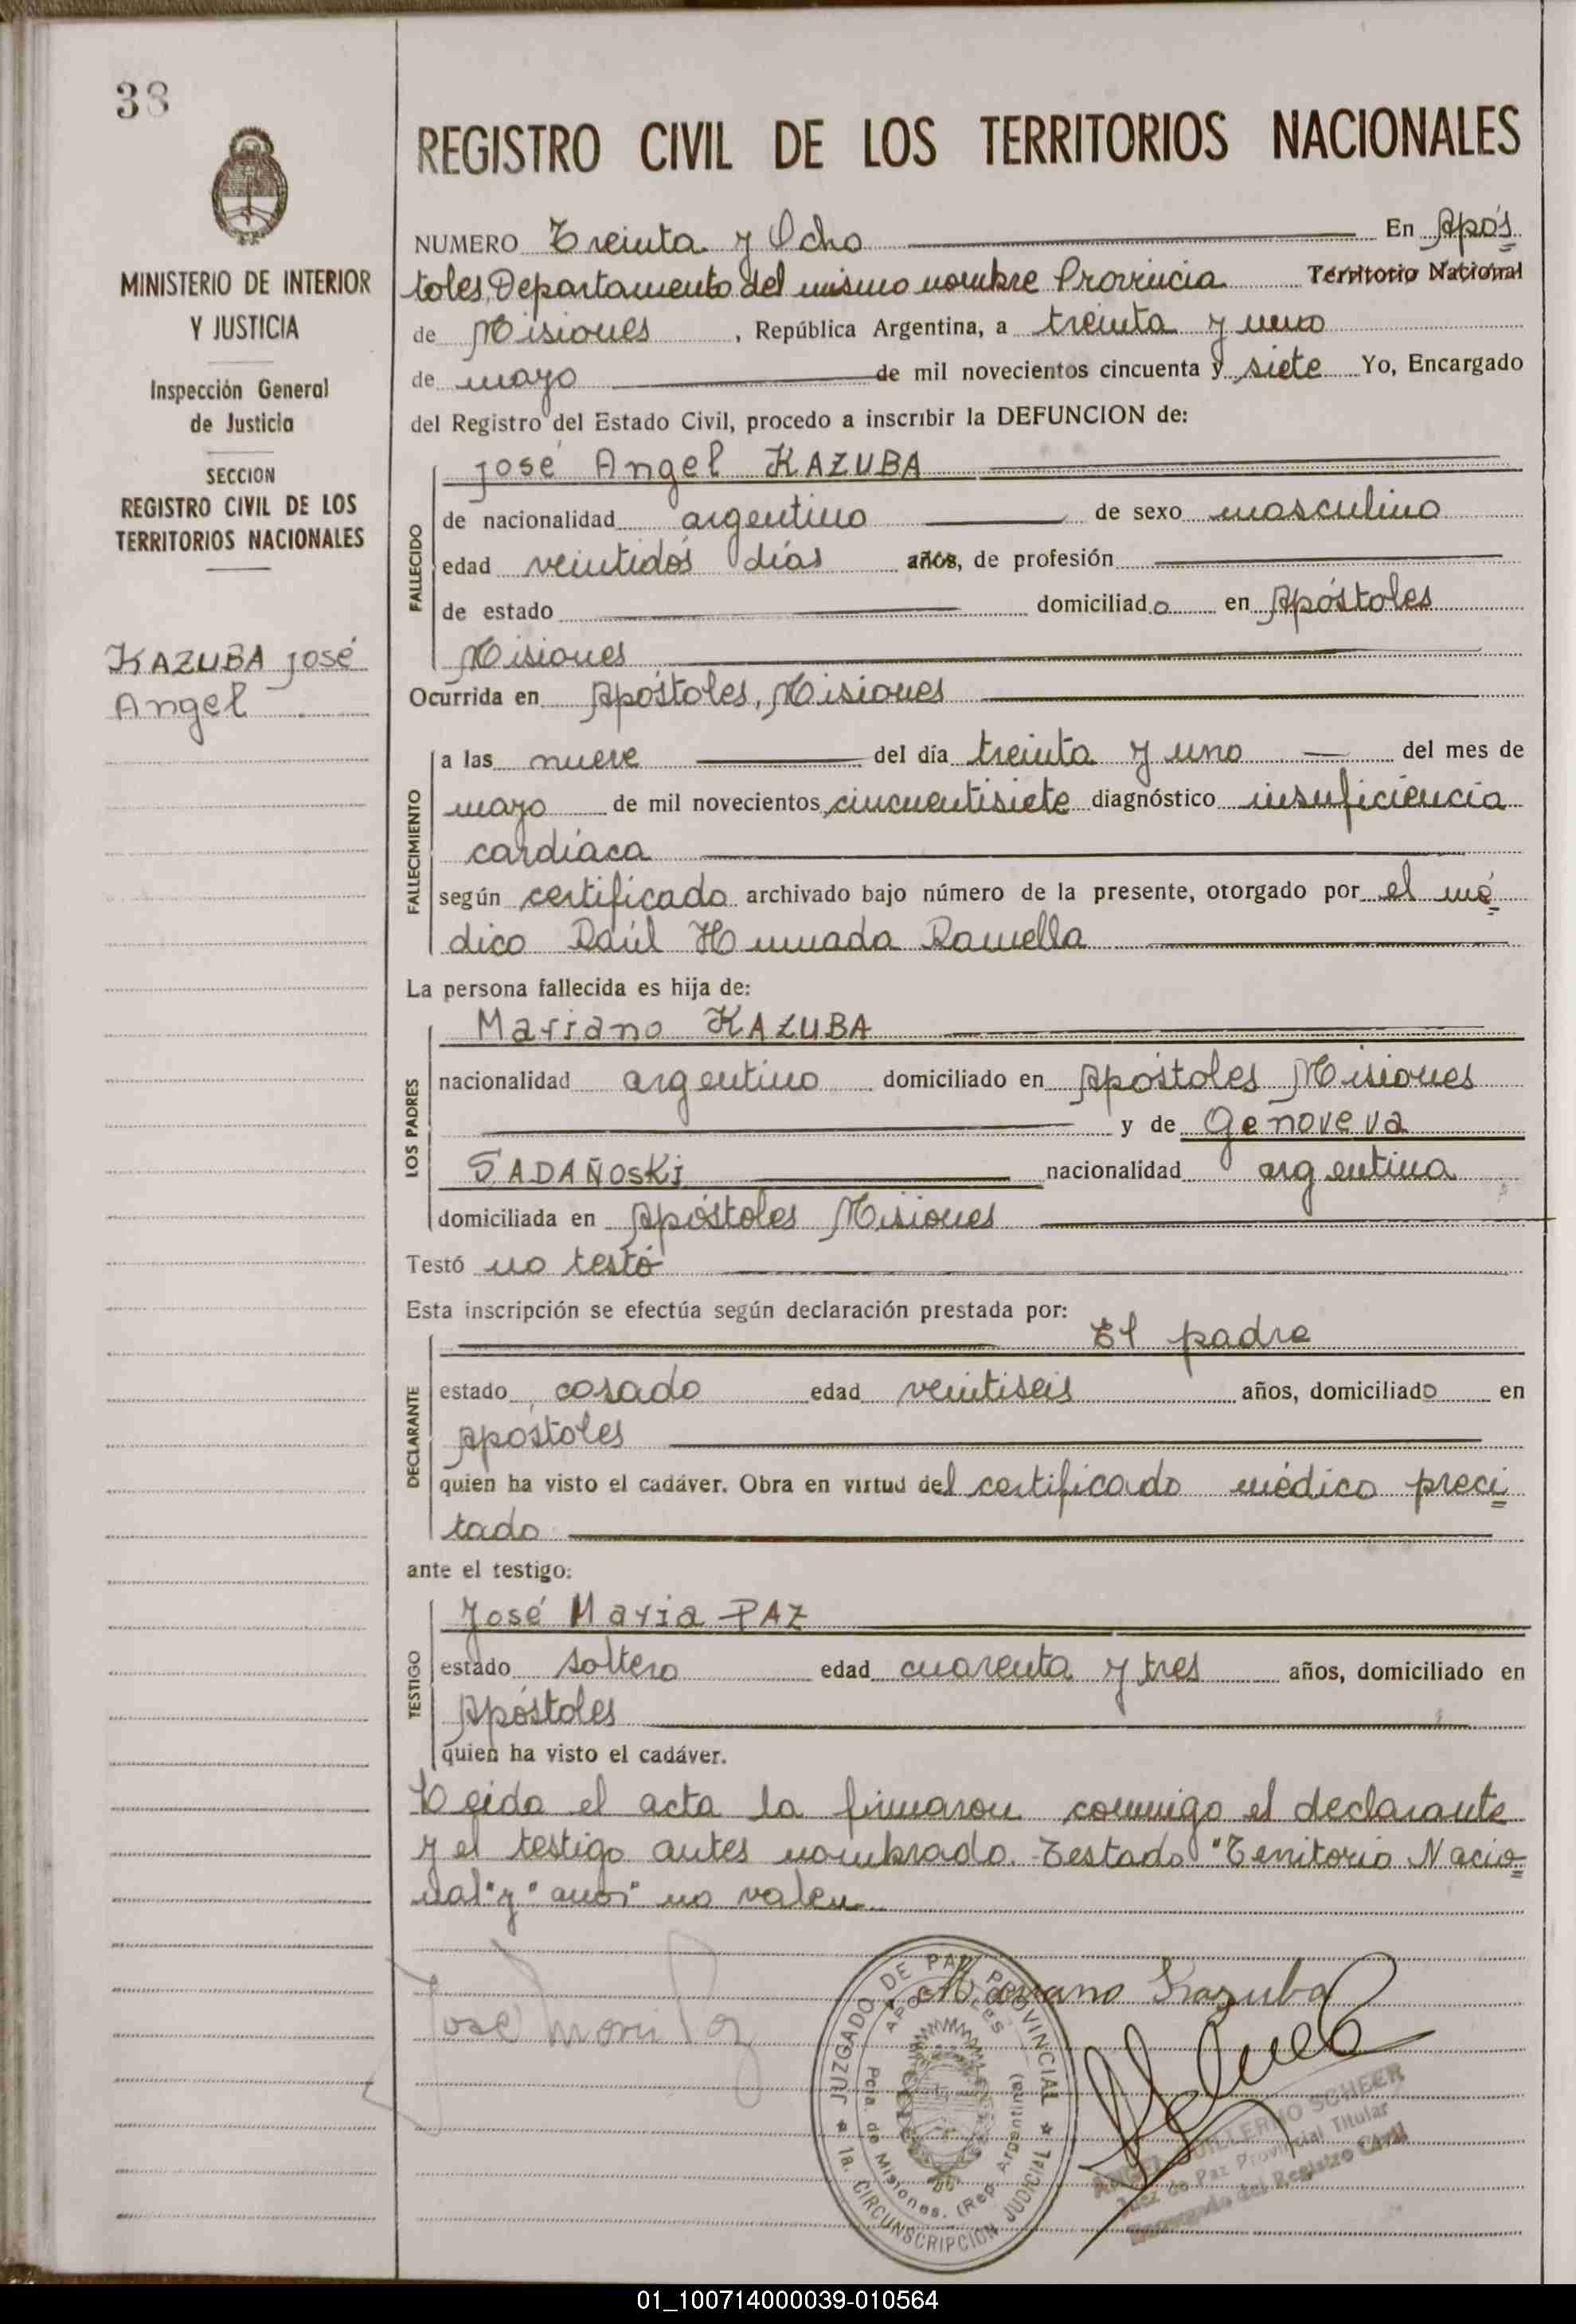 38
MINISTERIO DE INTERIOR
Y JUSTICIA
Inspección General
de Justicia
SECCION
REGISTRO CIVIL DE LOS
TERRITORIOS NACIONALES
KAZUBA José
Angel
REGISTRO CIVIL DE LOS TERRITORIOS NACIONALES
NUMERO Treinta y Ocho En Após
toles, Departamento del mismo nombre Provincia Territorio Nacional
de Misiones, República Argentina, a treinta y uno
de mayo de mil novecientos cincuenta y siete Yo, Encargado
del Registro del Estado Civil, procedo a inscribir la DEFUNCION de:
José Angel KAZUBA
FALLECIDO
de nacionalidad argentino de sexo masculino
edad veintidós días años, de profesión
de estado domiciliado en Apóstoles
Misiones
Ocurrida en Apóstoles, Misiones
FALLECIMIENTO
a las nueve del día treinta y uno del mes de
mayo de mil novecientos cincuentisiete diagnóstico insuficiencia
cardíaca
según certificado archivado bajo número de la presente, otorgado por el mé
dico Raúl Ramella
La persona fallecida es hija de:
LOS PADRES
Mariano KAZUBA
nacionalidad argentino domiciliado en Apóstoles Misiones
y de Genoveva
SADAÑOSKi nacionalidad argentina
domiciliada en Apóstoles Misiones
Testó no testó
Esta inscripción se efectúa según declaración prestada por:
DECLARANTE
El padre
estado casado edad veintiseis años, domiciliado en
Apóstoles
quien ha visto el cadáver. Obra en virtud del certificado médico preci
tado
ante el testigo:
TESTIGO
José Maria PAZ
estado soltero edad cuarenta y tres años, domiciliado en
Apóstoles
quien ha visto el cadáver.
Leída el acta la firmaron conmigo el declarante
y el testigo antes nombrado. Testado "Territorio Nacio
nal" y "años" no valen
Mariano Kazuba
José Maria Paz
JUZGADO DE PAZ PROVINCIAL
APOSTOLES
Pcia. de Misiones. (Rep. Argentina)
1a. CIRCUNSCRIPCION JUDICIAL
ANGEL GUILLERMO SCHEER
Juez de Paz Provincial Titular
Encargado del Registro Civil
01_100714000039-010564